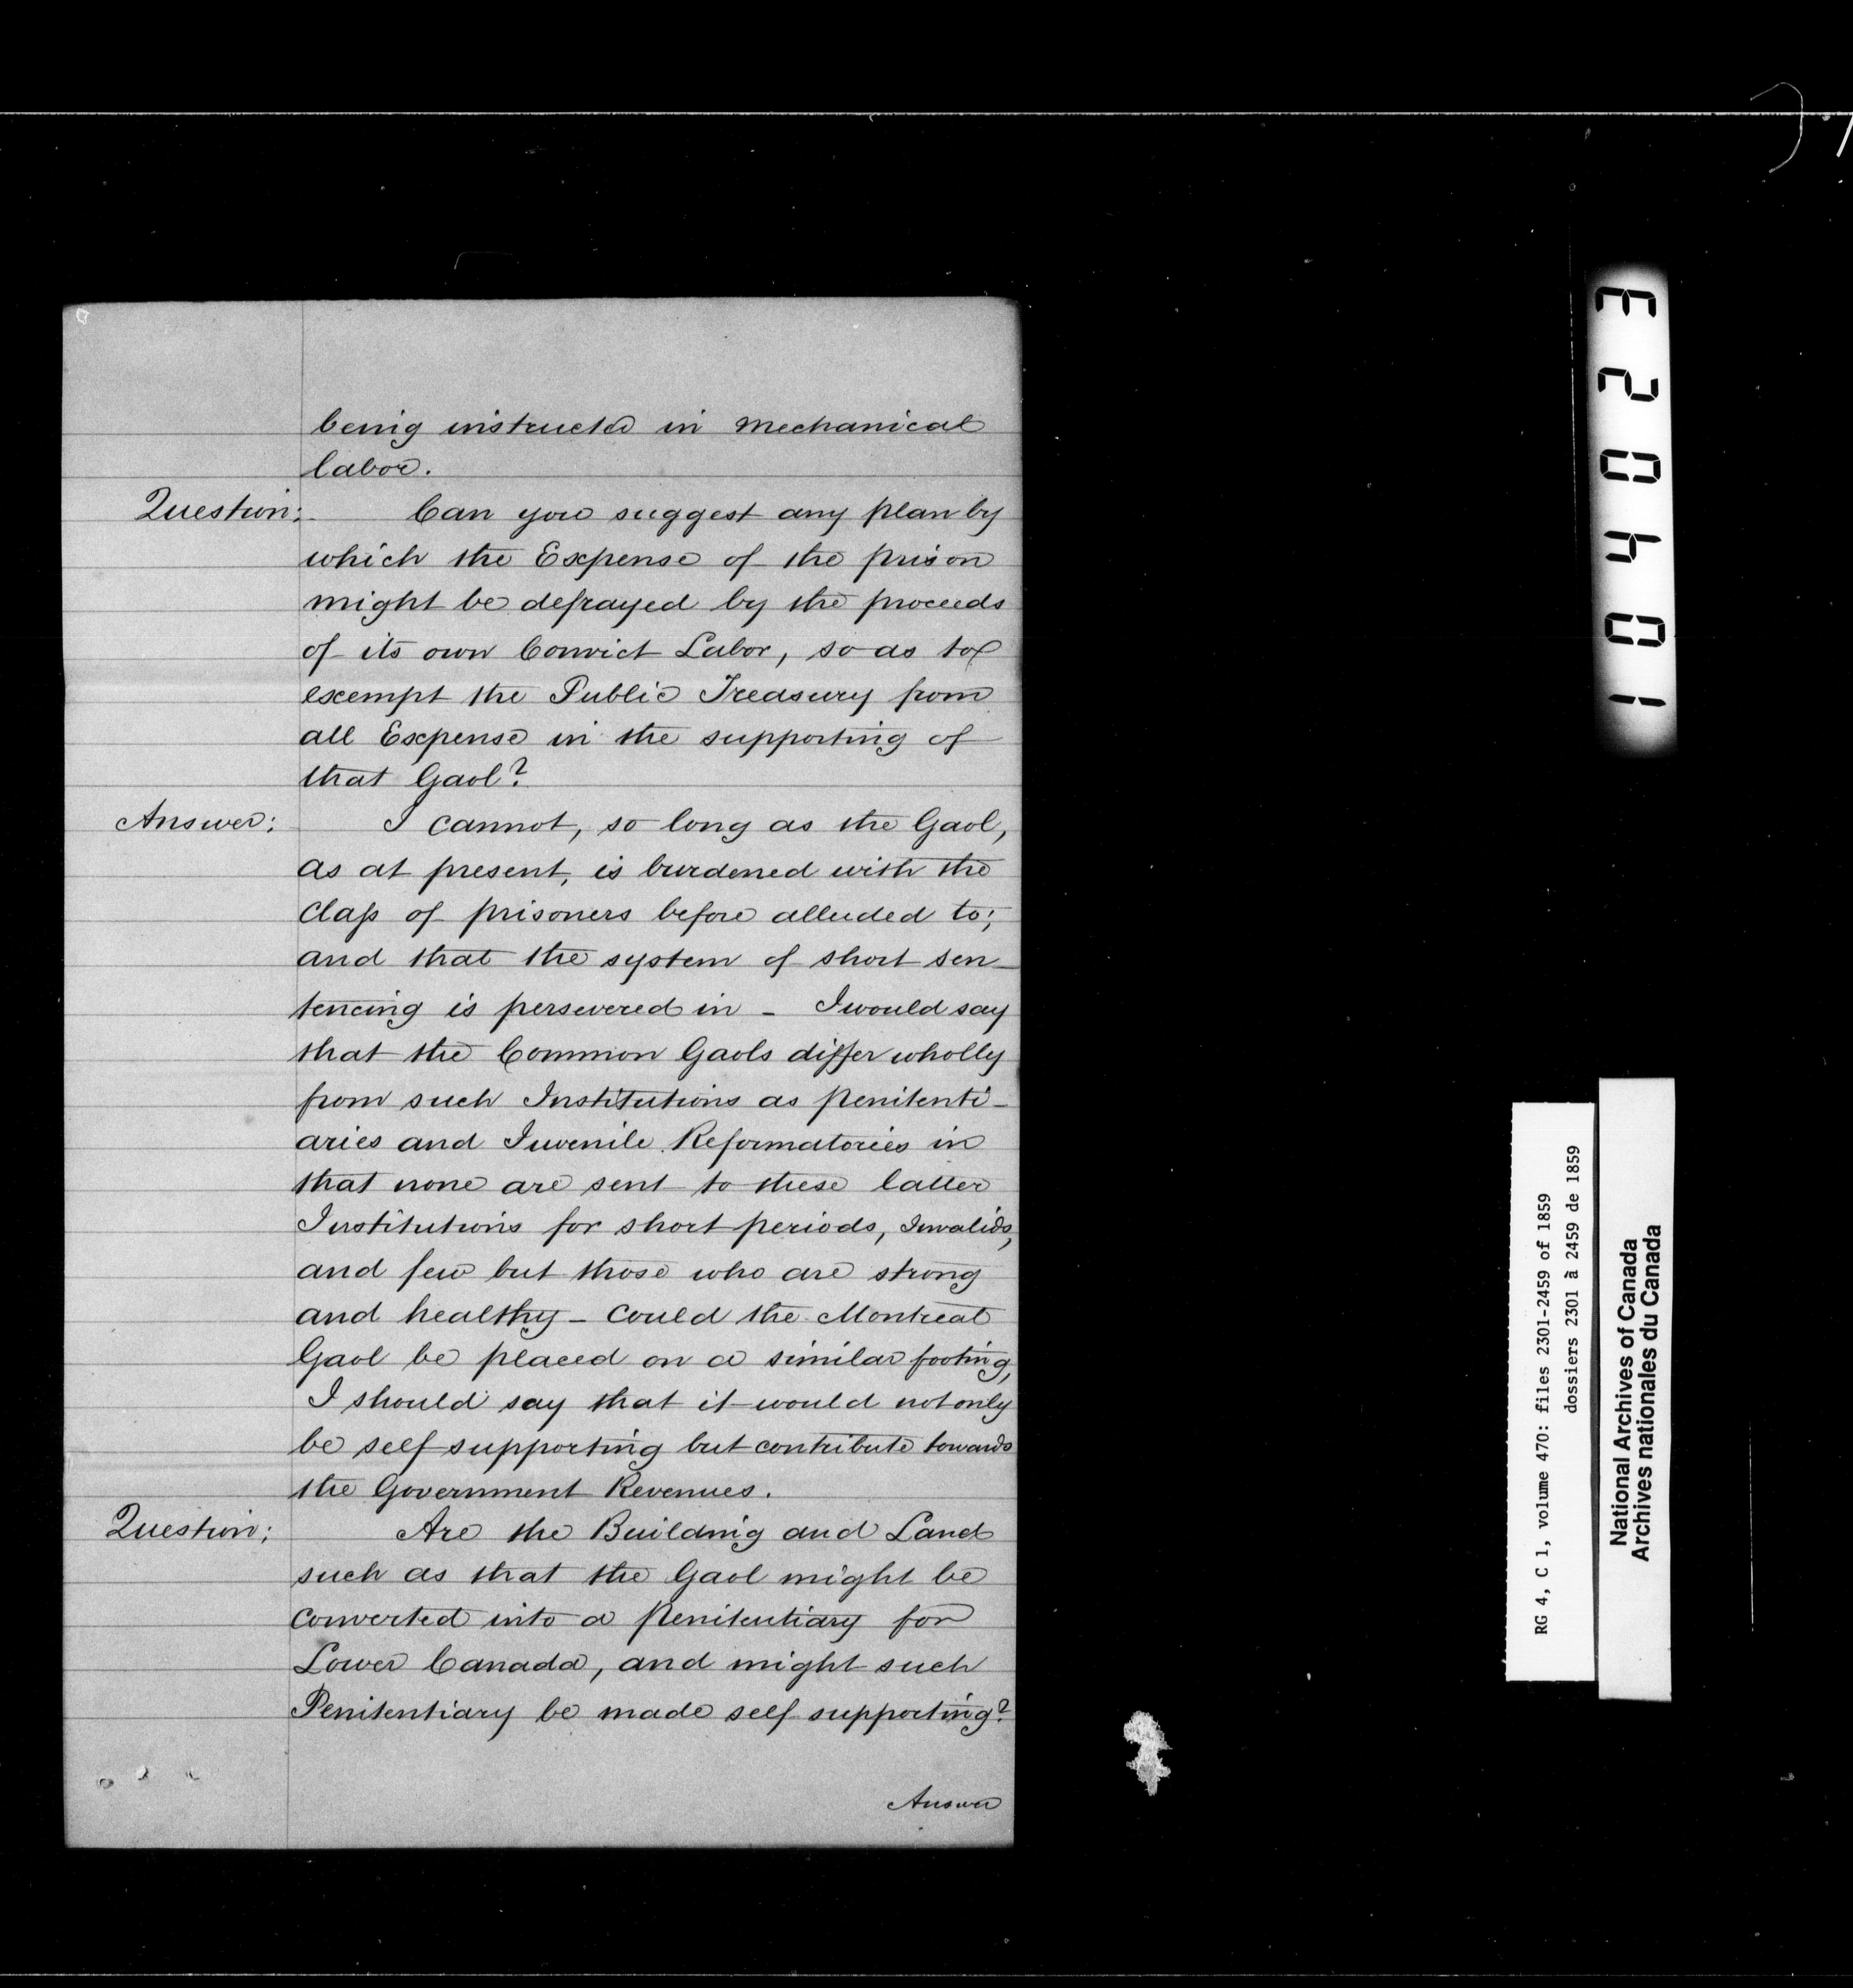 being instructed in mechanical
labor.
Question: Can you suggest any plan by
which the Expense of the prison
might be defrayed by the proceeds
of its own Convict Labor, so as to
exempt the Public Treasury from
all Expense in the supporting of
that Gaol?
Answer: I cannot, so long as the Gaol,
as at present, is burdened with the
class of prisoners before alluded to;
and that the system of short sen-
tencing is persevered in - I would say
that the Common Gaols differ wholly
from such Institutions as penitenti-
aries and Juvenile Reformatories in
that none are sent to these latter
Institutions for short periods, Invalids,
and few but those who are strong
and healthy - Could the Montreal
Gaol be placed on a similar footing,
I should say that it would not only
be self supporting but contribute towards
the Government Revenues.
Question: Are the Building and Land
such as that the Gaol might be
converted into a penitentiary for
Lower Canada, and might such
Penitentiary be made self supporting?
Answer
104023
RG 4, C 1, volume 470: files 2301-2459 of 1859
dossiers 2301 à 2459 de 1859
National Archives of Canada
Archives nationales du Canada